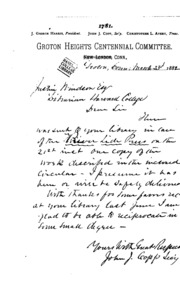 1781.
J. George Harris, President. John J. Copp, Sec'y. Christopher L. Avery, Treas.
GROTON HEIGHTS CENTENNIAL COMMITTEE.
New London, Conn.
Groton, Conn. March 23d 1882
Justin Windsor Esq
Librarian Harvard College
Dear Sir
There
was sent to your library in care
of the River Side Press on the
21st inst one copy of the
work described in the enclosed
circular – I presume it has
been or will be safely delivered
With thanks for some favors rec'd
at your library last June I am
glad to be able to reciprocate in
some small degree –
Yours with Great Respect
John J. Copp Sec'y